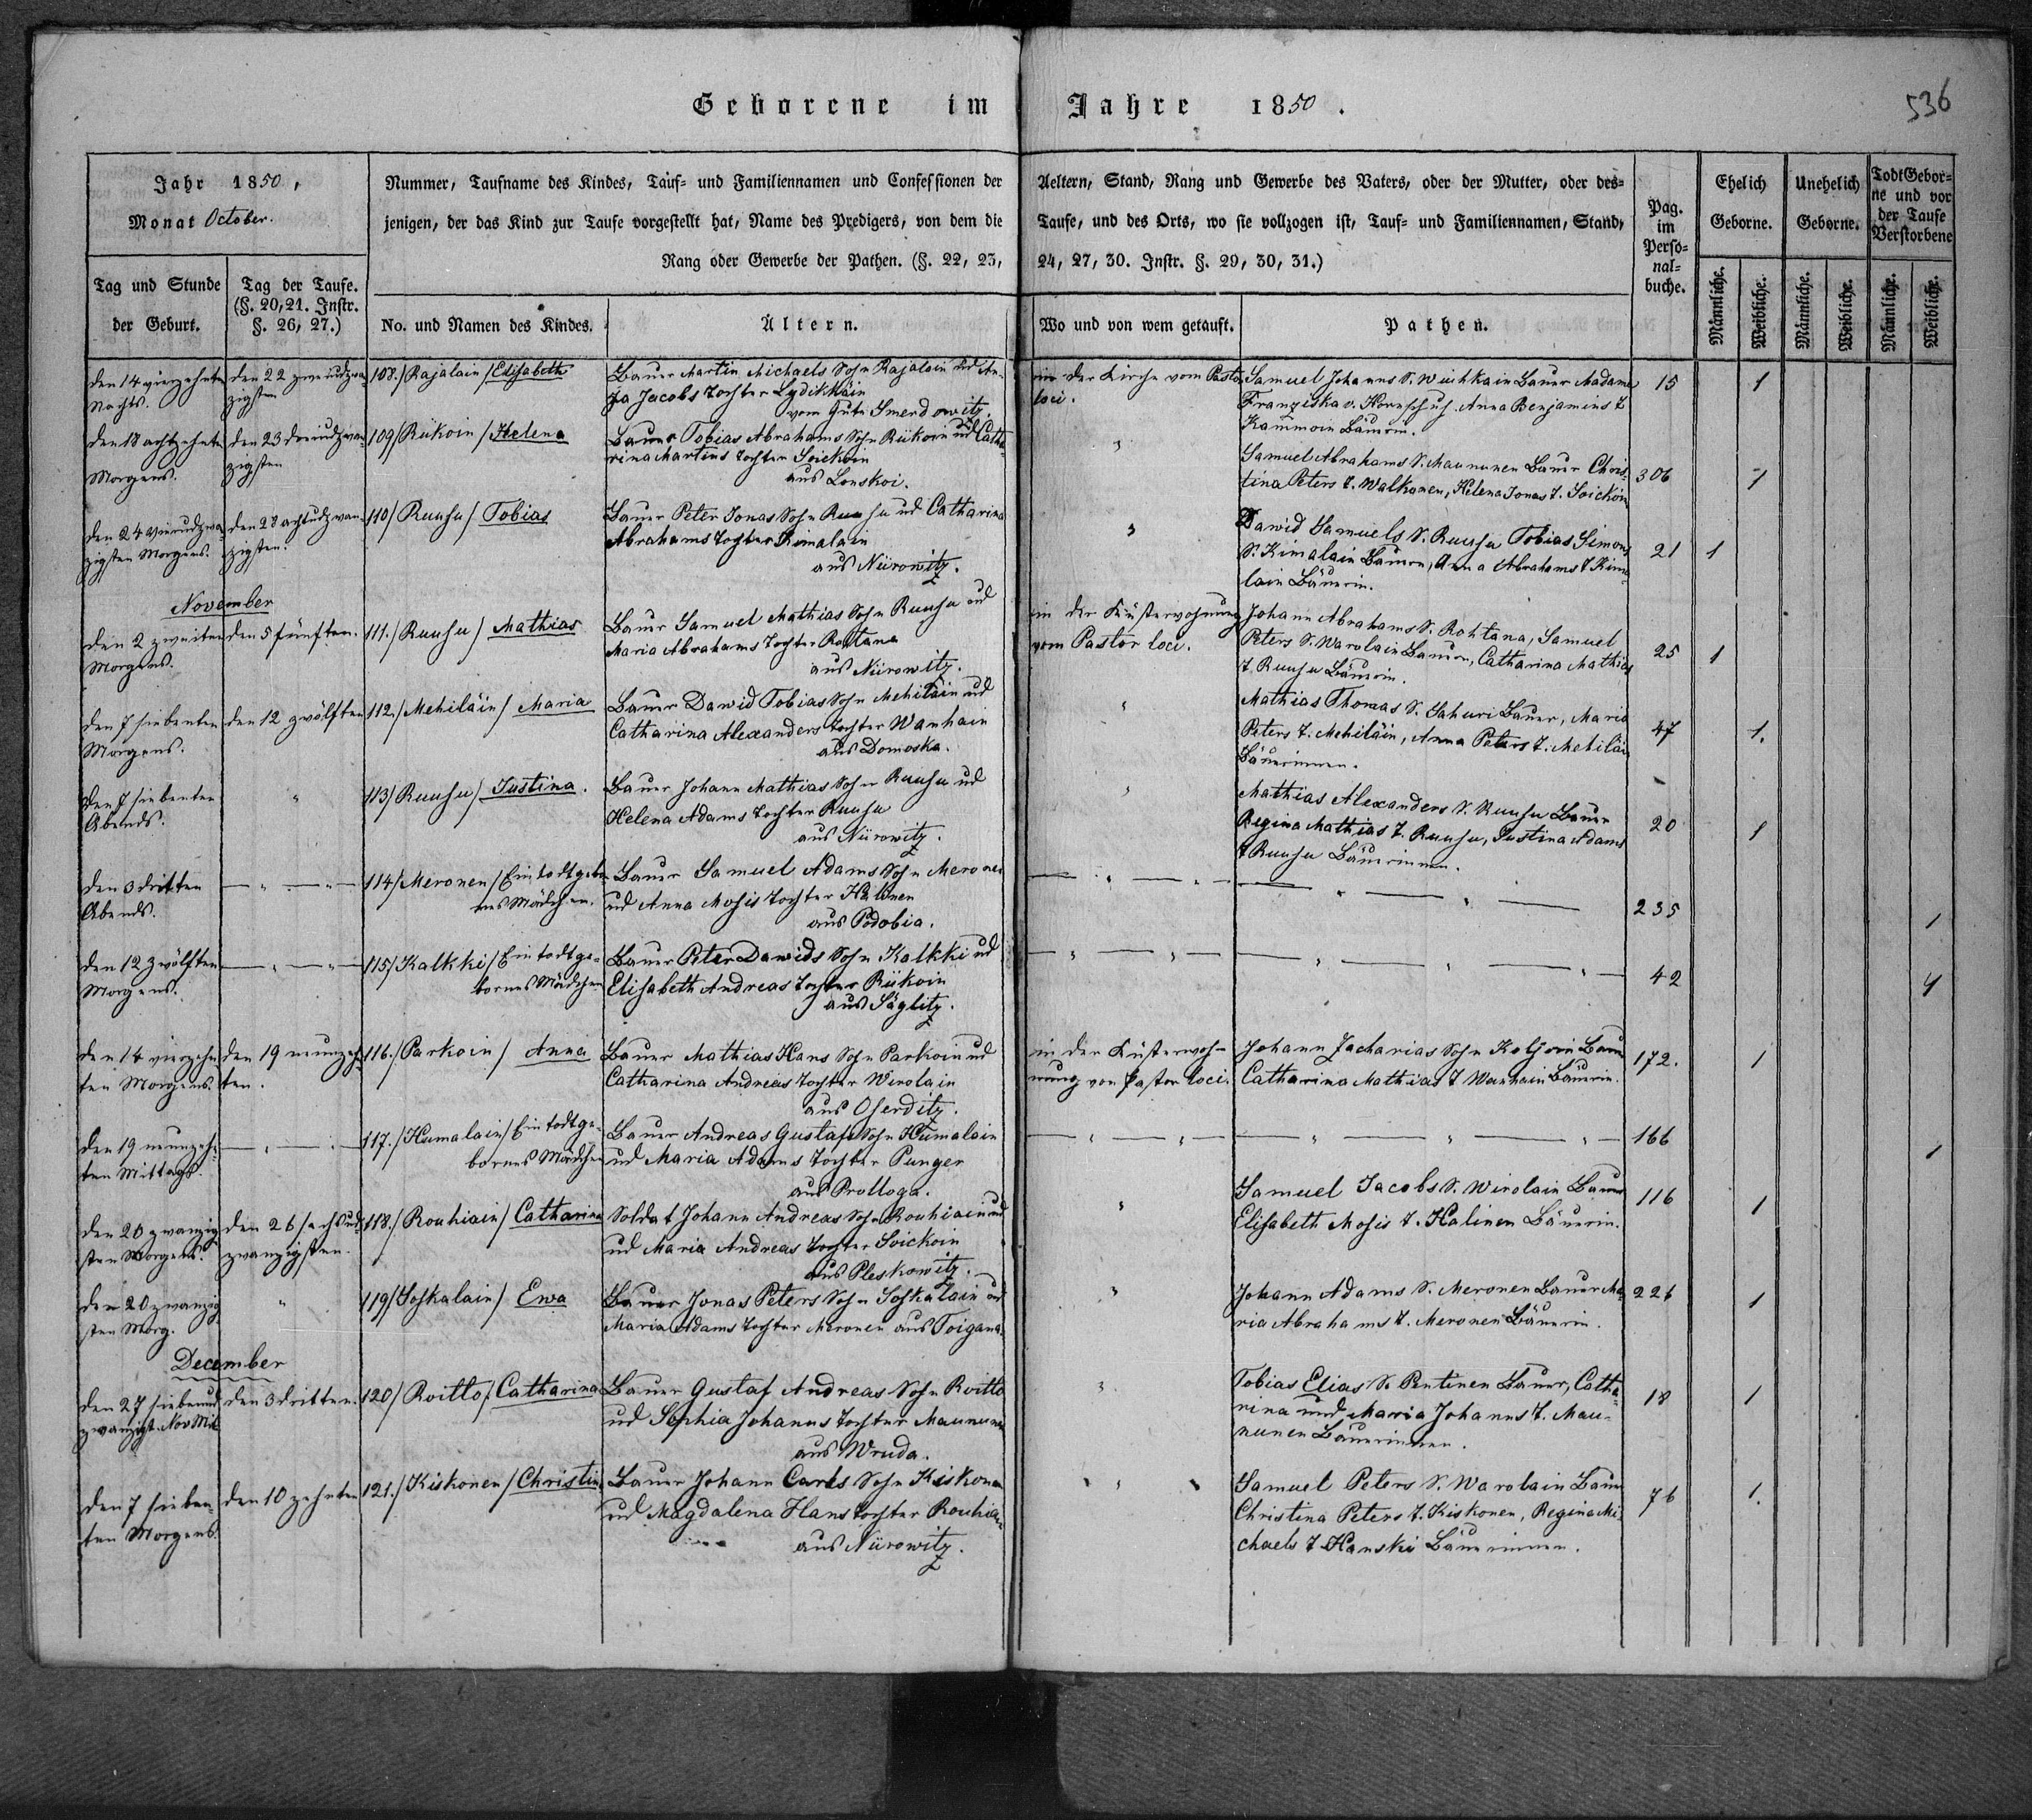 Geborene im Jahre 1850.
536
Jahr 1850,
Monat October.
Nummer, Taufname des Kindes, Tauf- und Familiennamen und Confessionen der Aeltern, Stand, Rang und Gewerbe des Vaters, oder der Mutter, oder des-
jenigen, der das Kind zur Taufe vorgestellt hat, Name des Predigers, von dem die Taufe, und des Orts, wo sie vollzogen ist, Tauf- und Familiennamen, Stand,
Rang oder Gewerbe der Pathen. (§. 22, 23, 24, 27, 30. Instr. §. 29, 30, 31.)
Pag.
im
Perso-
nal-
buche.
Ehelich
Geborne.
Unehelich
Geborne.
TodtGebor-
ne und vor
der Taufe
Verstorbene
Tag und Stunde
der Geburt.
Tag der Taufe.
(§. 20, 21. Instr.
§. 26, 27.)
No. und Namen des Kindes.
Ältern.
Wo und von wem getauft.
Pathen.
Männliche. Weibliche. Männliche. Weibliche. Männliche. Weibliche.
den 14 vierzehnten
Nachts.
den 22 zweiudzwa
zigsten
108./ Rajalain / Elisabeth
Bauer Martin Michaels Sohn Rajalain und An-
na Jacobs Tochter Lydikkäin
vom Gute Smerdowitz.
in der Kirche vom Pastor
loci.
Samuel Johanns S. Bauer Madame
Franziska v. Anna Benjamins T.
Bäuerin.
15 1
den 18 achtzehnten
Morgens.
den 23 dreiudzwan
zigsten
109/ Riikoin / Helena
Bauer Tobias Abrahams Sohn Riikoin ud Catha-
rina Martins Tochter Soickoin
aus Lonskoi.
"
Samuel Abrahams S. Maununen Bauer Chris-
tina Peters T. Walkonen, Helena Jonas T. Soickoin
306 1
den 24 vierudzwa
zigsten Morgens.
den 28 achtudzwan
zigsten.
110/ Ruusu / Tobias
Bauer Peter Jonas Sohn Ruusu ud Catharina
Abrahams Tochter Kimalain
aus Niirowitz.
"
Dawid Samuels S. Ruusu Tobias Simons
S. Kimalain Bauern, Anna Abrahams T. Kima
lain Bäuerin.
21 1
November
den 2 zweiten
Morgens.
den 5 fünften.
111./ Ruusu / Mathias
Bauer Samuel Mathias Sohn Ruusu ud
Maria Abrahams Tochter
aus Niirowitz.
in der Küsterwohnung
vom Pastor loci.
Johann Abrahams S. Rohtana, Samuel
Peters S. Warolain Bauern, Catharina Mathias
T. Ruusu Bäuerin.
25 1
den 7 siebenten
Morgens.
den 12 zwölften
112./ Mehiläin / Maria
Bauer Dawid Tobias Sohn Mehiläin ud
Catharina Alexanders Tochter Wanhain
aus Domoska.
"
Mathias Thomas S. Sahuri Bauer, Maria
Peters T. Mehiläin, Anna Peters T. Mehiläin
Bäuerinnen.
47 1.
den 7 siebenten
Abends.
"
113/ Ruusu / Justina.
Bauer Johann Mathias Sohn Ruusu ud
Helena Adams Tochter Ruusu
aus Niirowitz.
"
Mathias Alexanders S. Ruusu Bauer
Regina Mathias T. Ruusu, Justina Adams
T. Ruusu Bäuerinnen.
20 1
den 3 dritten
Abends.
114/ Meronen / Ein todtgebo
nes Mädchen.
Bauer Samuel Adams Sohn Meronen
ud Anna Mosis Tochter Halonen
aus Podobia.
235 1
den 12 zwölften
Morgens.
115/ Kalkki / Ein todtge-
bornes Mädchen
Bauer Peter Dawids Sohn Kalkki ud
Elisabeth Andreas Tochter Riikoin
aus Säglitz.
42 1
den 14 vierzehn
ten Morgens.
den 19 neunzehn
ten.
116./ Parkoin / Anna
Bauer Mathias Hans Sohn Parkoin ud
Catharina Andreas Tochter Wirolain
aus Oserditz.
in der Küsterwoh-
nung von Pastor loci.
Johann Zacharias Sohn Bauer
Catharina Mathias T. Wanhain Bäuerin.
172. 1
den 19 neunzehn
ten Mittags.
117./ Humalain / Ein todtge-
bornes Mädchen
Bauer Andreas Gustafs Sohn Humalain
ud Maria Adams Tochter Punger
aus Prolloga.
166 1
den 20 zwanzig
sten Morgens.
den 26 sechsud
zwanzigsten.
118./ Rouhiain / Catharina
Soldat Johann Andreas Sohn Rouhiain ud
ud Maria Andreas Tochter Soickoin
aus Pleskowitz.
"
Samuel Jacobs S. Wirolain Bauer
Elisabeth Mosis T. Halinen Bäuerin.
116 1
den 20 zwanzig
sten Morg.
"
119/ Soskalain / Ewa
Bauer Jonas Peters Sohn Soskalain ud
Maria Adams Tochter Meronen aus Toigana.
"
Johann Adams S. Meronen Bauer Ma-
ria Abrahams T. Meronen Bäuerin.
226 1
December
den 27 siebenud
zwanzigst. Nov Mit
den 3 dritten.
120/ Roitto / Catharina
Bauer Gustaf Andreas Sohn Roitto
ud Sophia Johanns Tochter Maununen
aus Wruda.
"
Tobias Elias S. Pentinen Bauer, Catha-
rina und Maria Johanns T. Mau-
nunen Bäuerinnen.
18 1
den 7 sieben
ten Morgens.
den 10 zehnten
121./ Kiskonen / Christina
Bauer Johann Carls Sohn Kiskonen
ud Magdalena Hans Tochter Rouhiain
aus Niirowitz.
"
Samuel Peters S. Warolain Bauer
Christina Peters T. Kiskonen, Regina Mi-
chaels T. Hanski Bäuerinnen.
76 1.